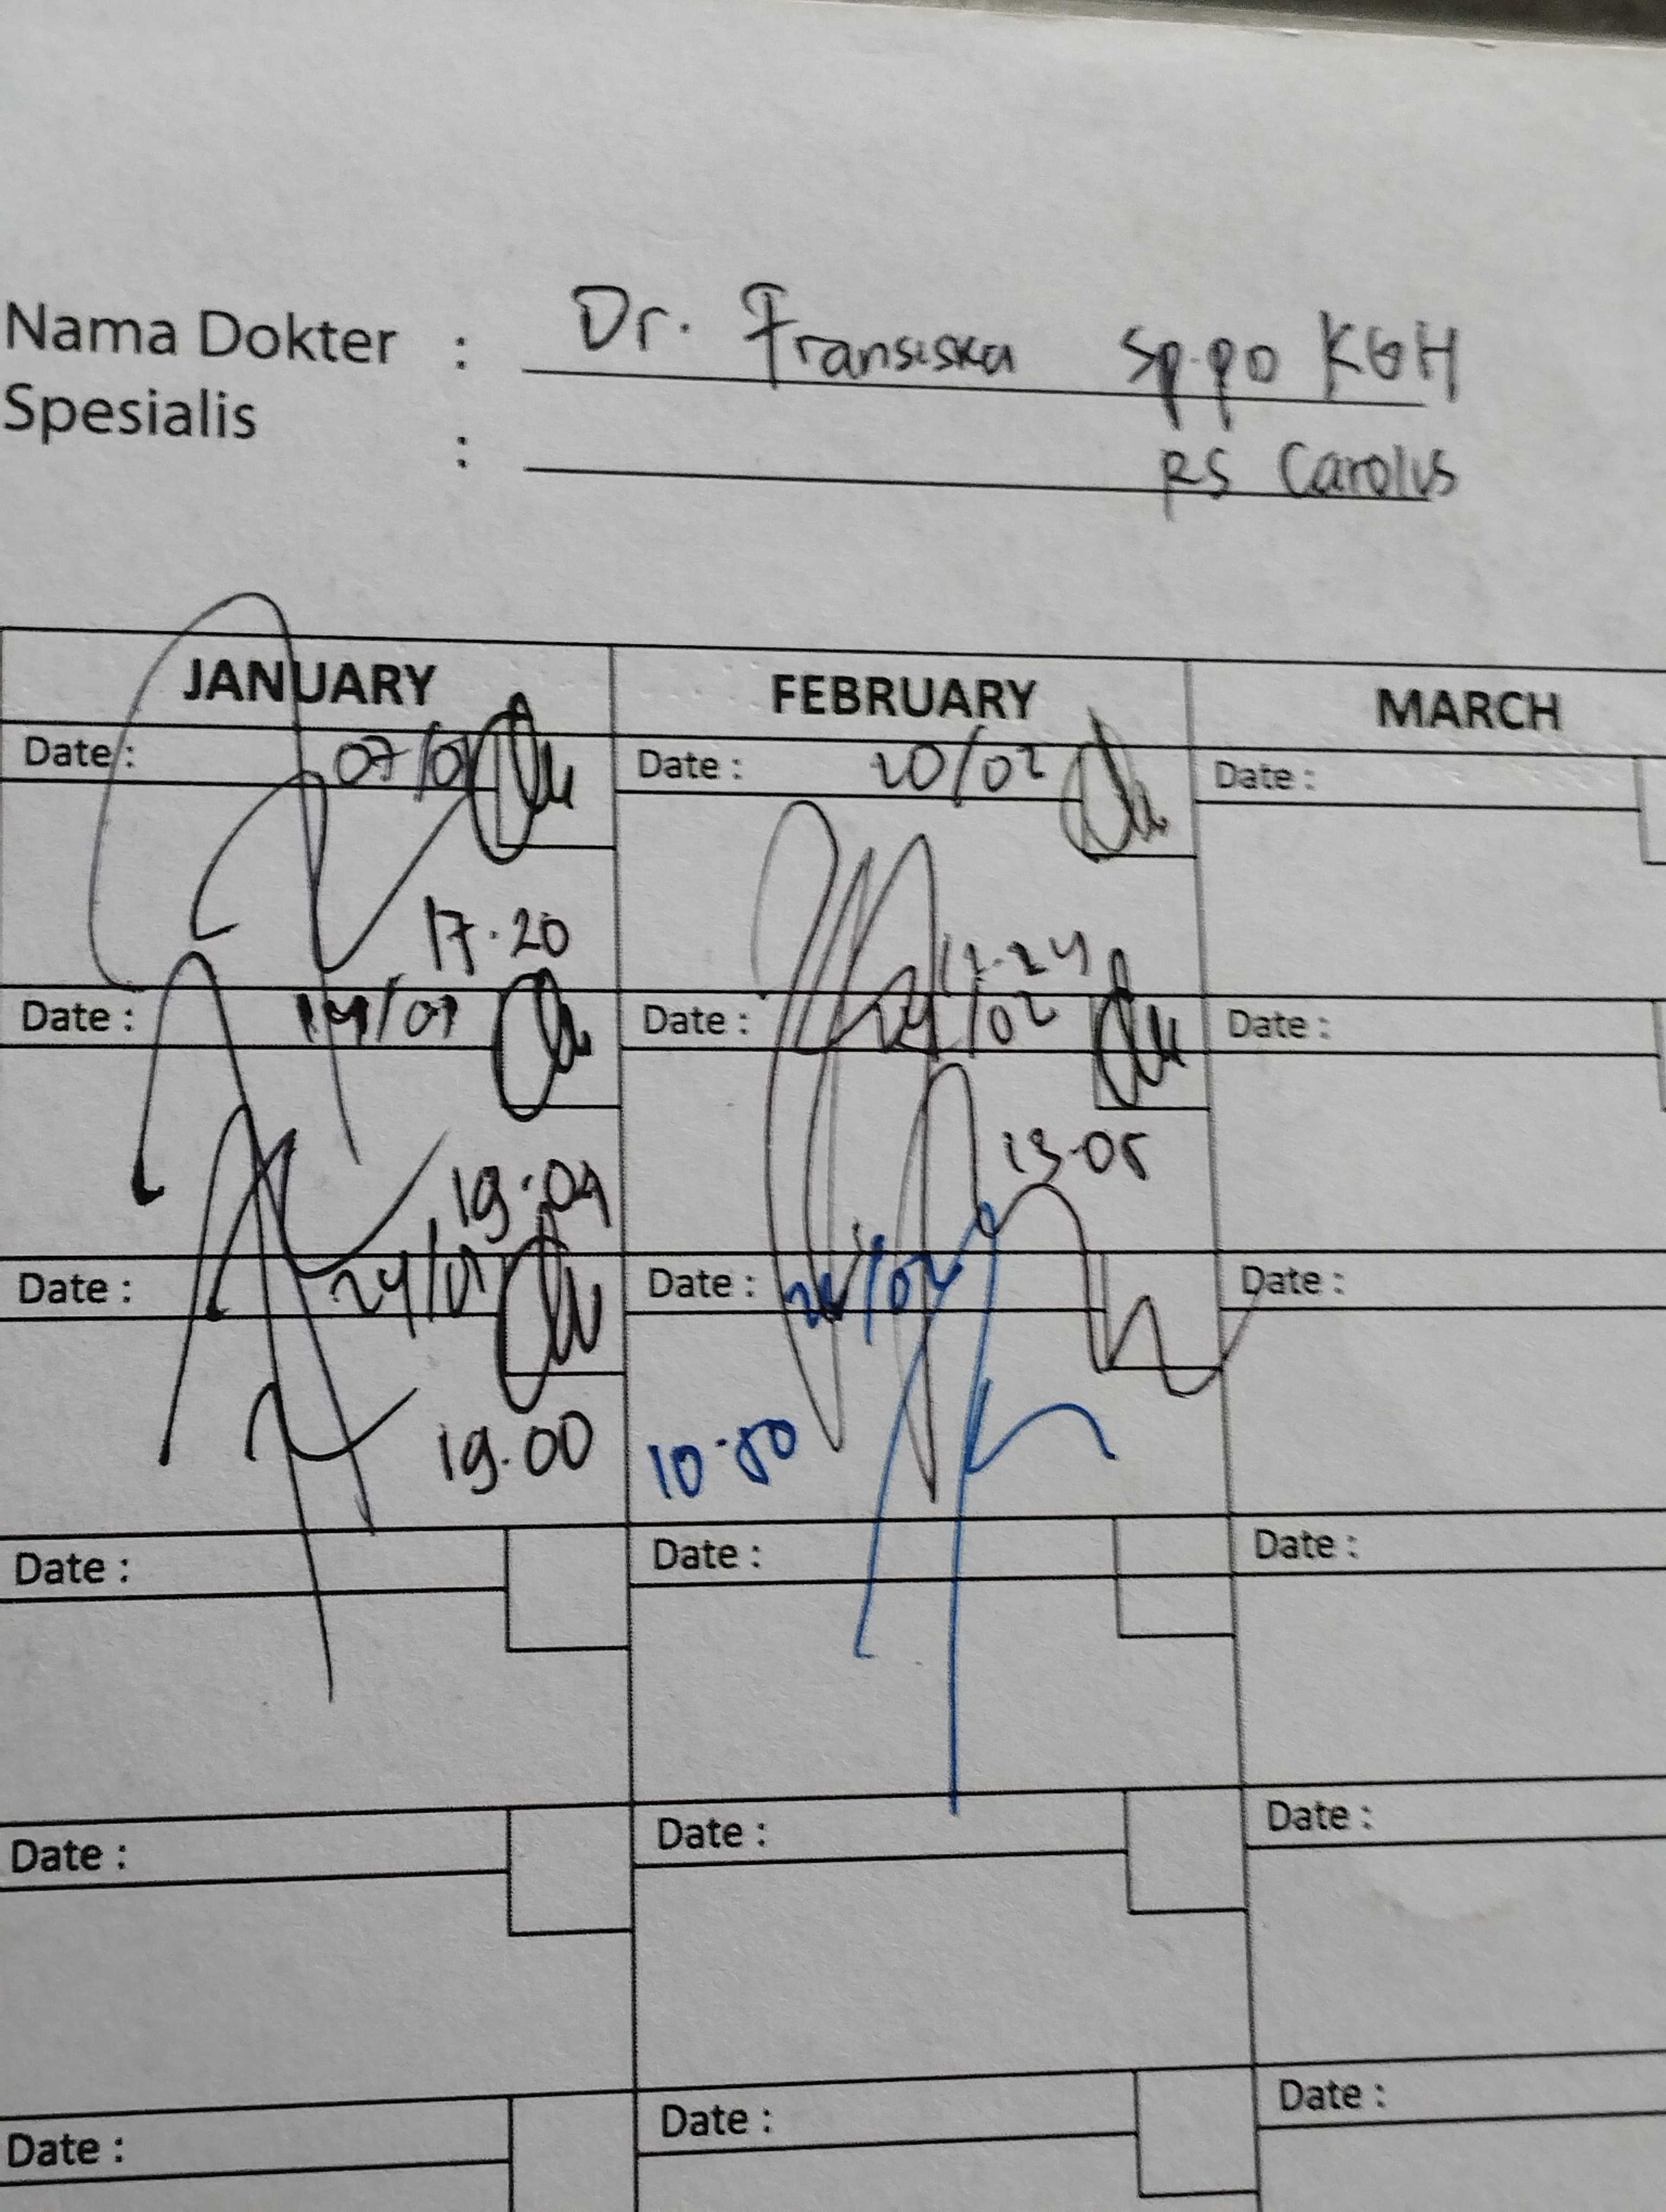 Nama Dokter : Dr. Fransiska Sp.PD KGH
Spesialis : RS Carolus
JANUARY FEBRUARY MARCH
Date : 07/01 Date : 20/02 Date :
17.20
Date : 14/01 Date : 24/02 Date :
19.04 13.05
Date : 24/01 Date : /02 Date :
19.00 10.50
Date : Date : Date :
Date : Date : Date :
Date : Date : Date :